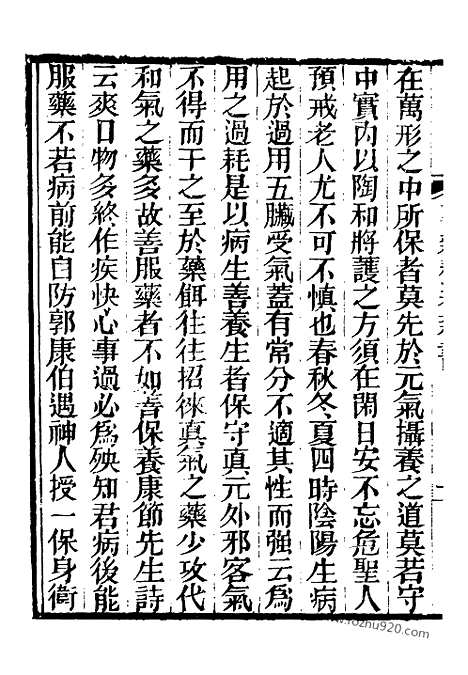 在萬形之中所保者莫先於元氣攝養之道莫若守
中實內以陶和將護之方須在閑日安不忘危聖人
預戒老人尤不可不慎也春秋冬夏四時陰陽生病
起於過用五臟受氣蓋有常分不適其性而強云爲
用之過耗是以病生善養生者保守真元外邪客氣
不得而干之至於藥餌往往招徠真氣之藥少攻伐
和氣之藥多故善服藥者不如善保養康節先生詩
云爽口物多終作疾快心事過必爲殃知君病後能
服藥不若病前能自防郭康伯遇神人授一保身衛